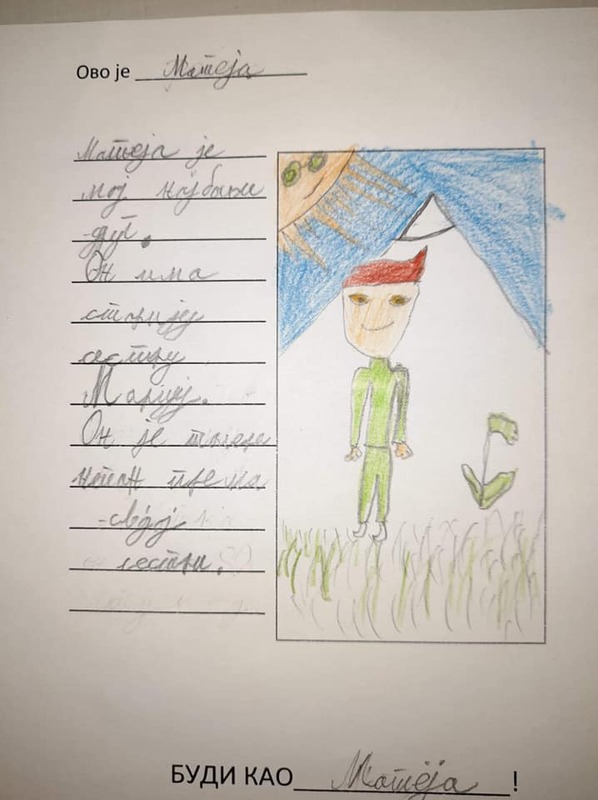 Ово је Матеја
Матеја је
мој
друг.
Он има
старију
сестру
Марију.
Он је
према
својој
сестри.
БУДИ КАО Матеја !